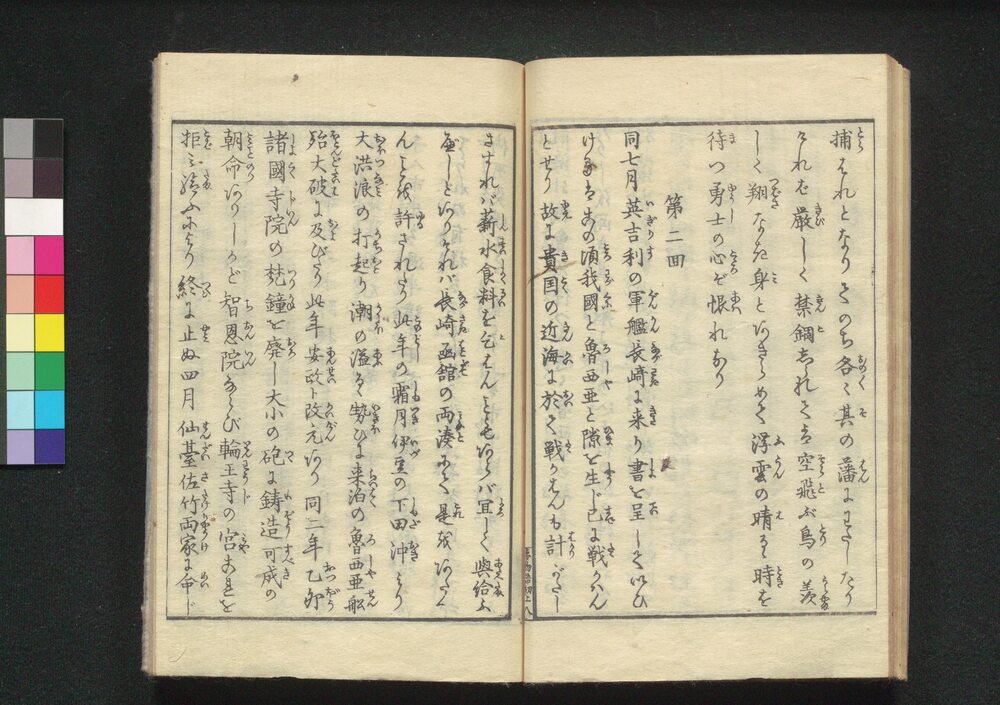 捕はれとなりそのち各〻其の藩にわたしたり
されば厳しく禁錮せられては空飛ぶ鳥の羨
しく翔なき身とあきらめて浮雲の晴るゝ時を
待つ勇士の心ぞ恨れなり
第二回
同七月英吉利の軍艦長崎に来り書を呈していひ
けるはこの頃我國と魯西亜と隙を生じ已に戦かはん
とせり故に貴国の近海に於て戦かはんも計がたし
さすれバ薪水食料を乞はんこともあらバ宜しく與給ふ
べしとありければ長崎函館の両湊にて是をあたへ
んことを許されたり此年の霜月伊豆の下田沖より
大洪浪の打起り潮の溢るゝ勢ひに来泊の魯西亜舩
殆大破に及びたり此年安政ト改元あり同二年乙卯
諸國寺院の梵鐘を廃し大小の砲に鋳造可成の
朝命ありしかど智恩院ならび輪王寺の宮これを
拒み給ふにより終に止ぬ四月仙臺佐竹両家に命じ